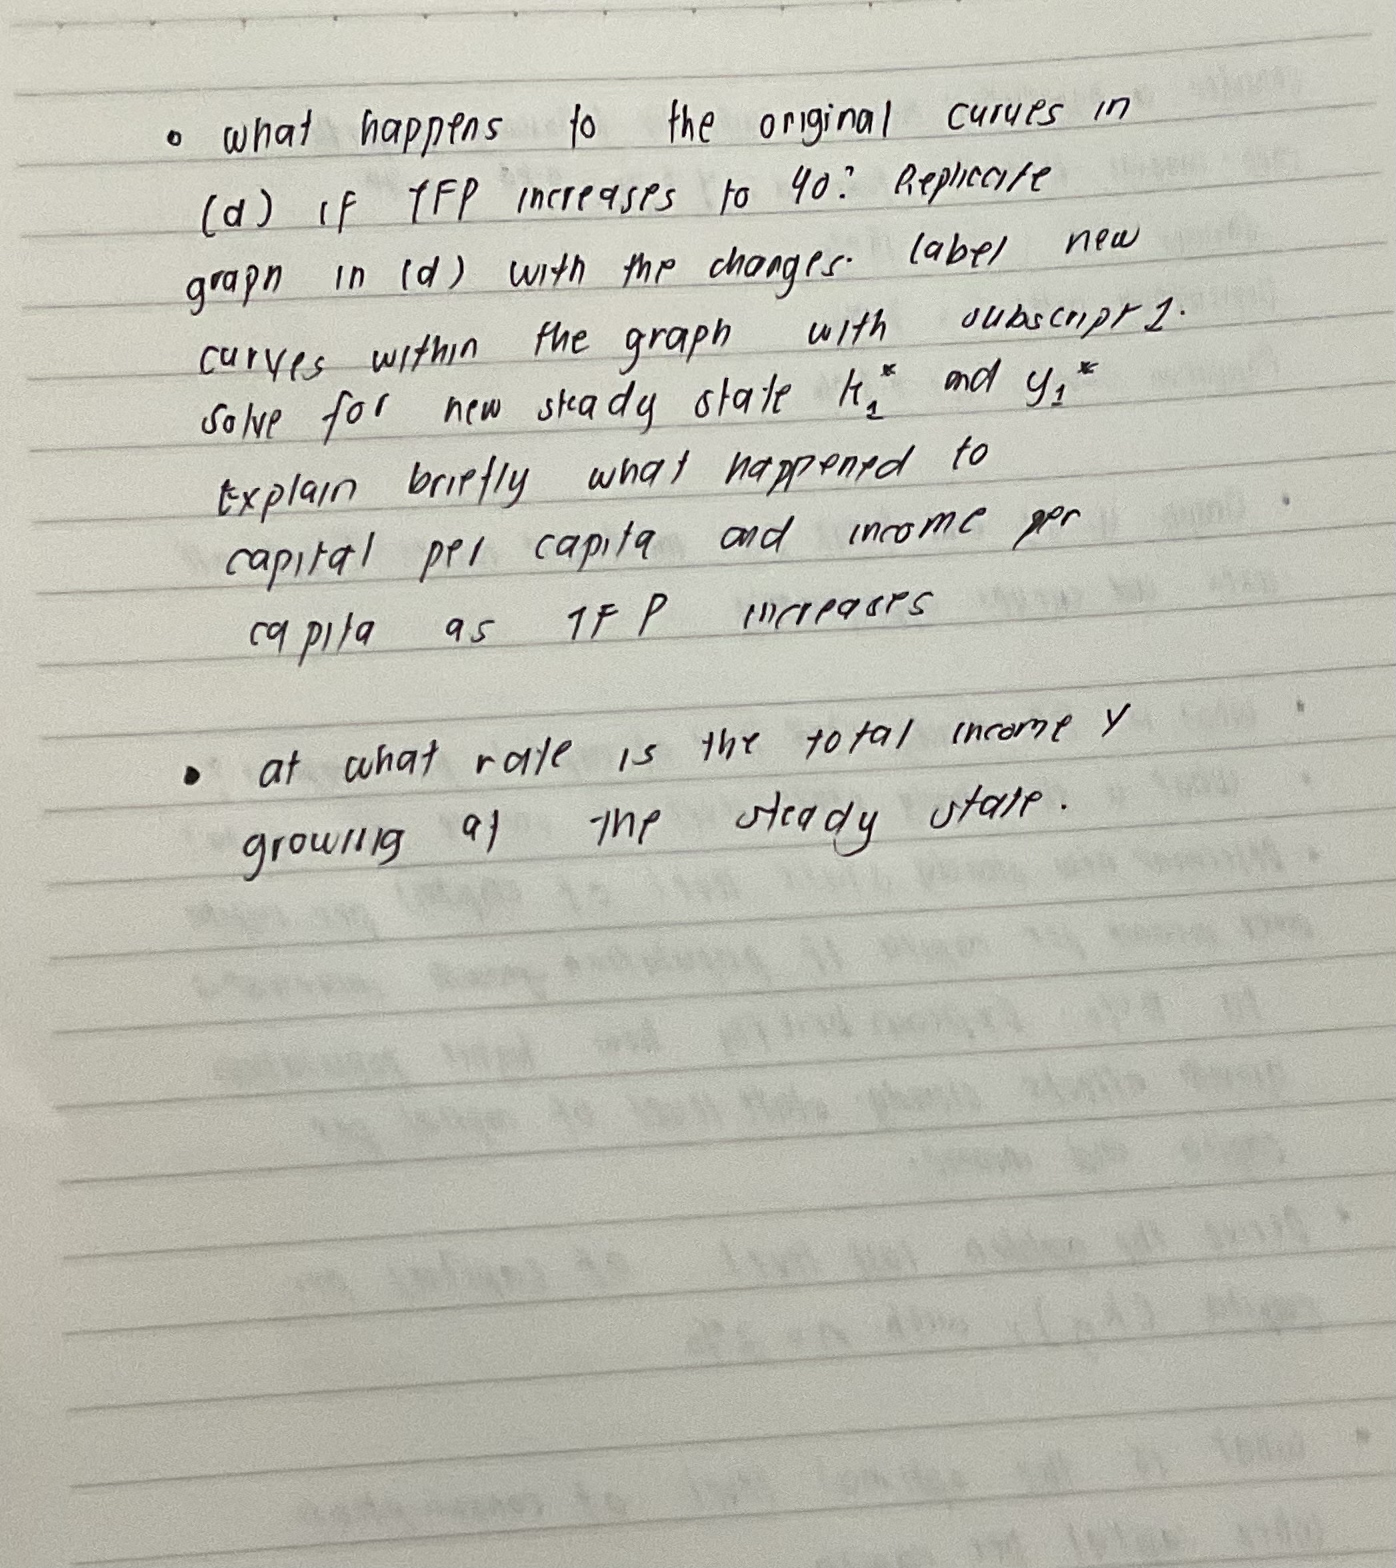 • what happens to the original curves in
(d) if TFP increases to 40? Replicate
graph in (d) with the changes. label new
curves within the graph with subscript 1.
solve for new steady state k₁* and y₁*
Explain briefly what happened to
capital per capita and income per
capita as TFP increases
• at what rate is the total income Y
growing at the steady state.